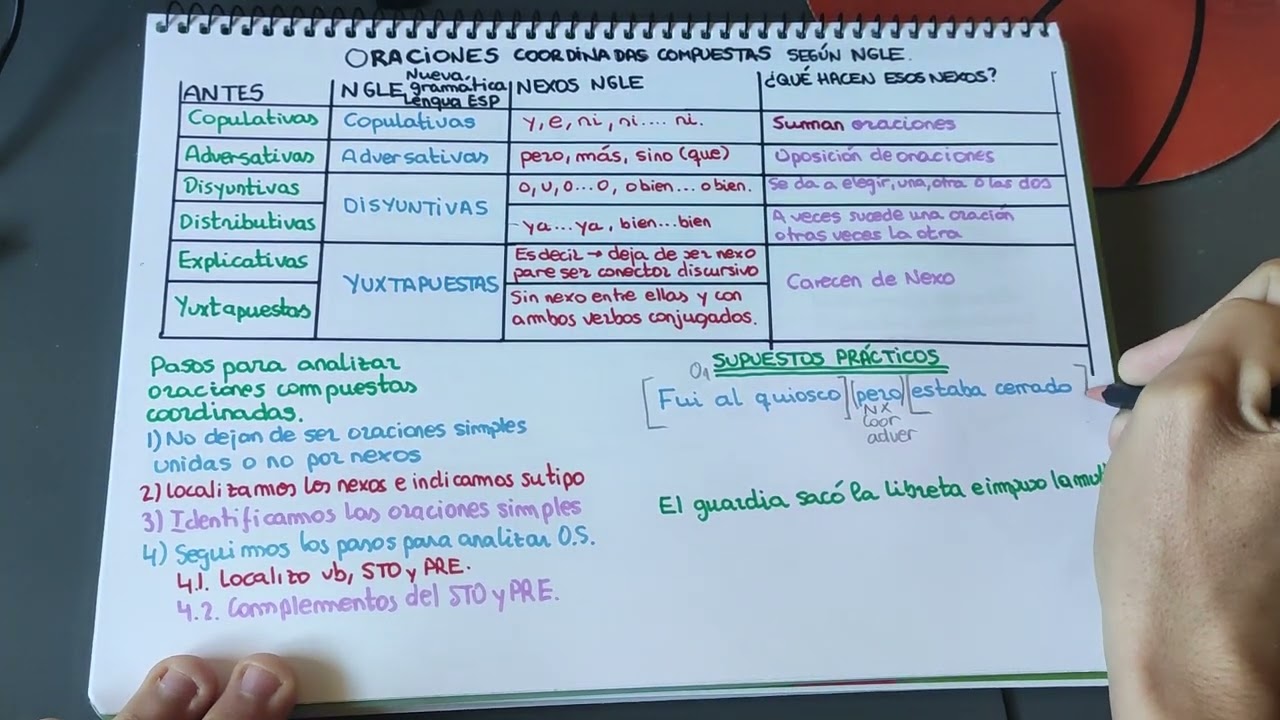 ORACIONES COORDINADAS COMPUESTAS SEGÚN NGLE.
ANTES
NGLE Nueva gramática Lengua ESP
NEXOS NGLE
¿QUÉ HACEN ESOS NEXOS?
Copulativas
Copulativas
y, e, ni, ni.... ni.
Suman oraciones
Adversativas
Adversativas
pero, más, sino (que)
Oposición de oraciones
Disyuntivas
DISYUNTIVAS
o, u, o...o, o bien... o bien.
Se da a elegir, una, otra o las dos
Distributivas
ya...ya, bien...bien
A veces sucede una oración
otras veces la otra
Explicativas
YUXTAPUESTAS
Es decir → deja de ser nexo
pare ser conector discursivo
Carecen de Nexo
Yuxtapuestas
Sin nexo entre ellas y con
ambos verbos conjugados.
Pasos para analizar
oraciones compuestas
coordinadas.
1) No dejan de ser oraciones simples
unidas o no por nexos
2) Localizamos los nexos e indicamos su tipo
3) Identificamos las oraciones simples
4) Seguimos los pasos para analizar O.S.
4.1. Localizo vb, STO y PRE.
4.2. Complementos del STO y PRE.
SUPUESTOS PRÁCTICOS
O1
[Fui al quiosco] (pero) [estaba cerrado]
NX
Coor
adver
El guardia sacó la libreta e impuso la